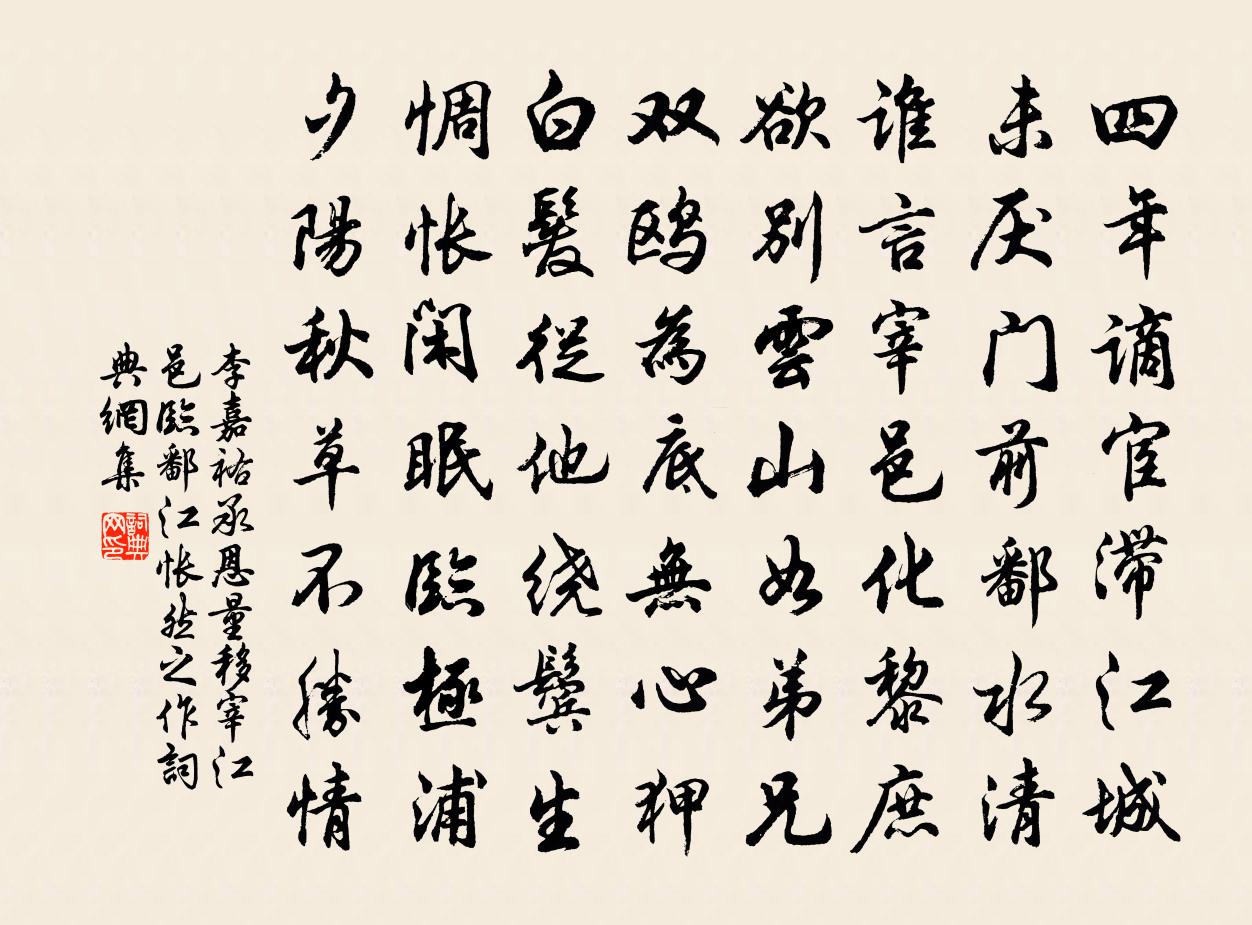 四年谪宦滞江城
未厌门前鄱水清
谁言宰邑化黎庶
欲别雲山如弟兄
双鸥為底無心狎
白髮從他绕鬓生
惆怅闲眠臨極浦
夕陽秋草不勝情
李嘉祐承恩量移宰江
邑臨鄱江怅然之作詞
典網集
詞典网印